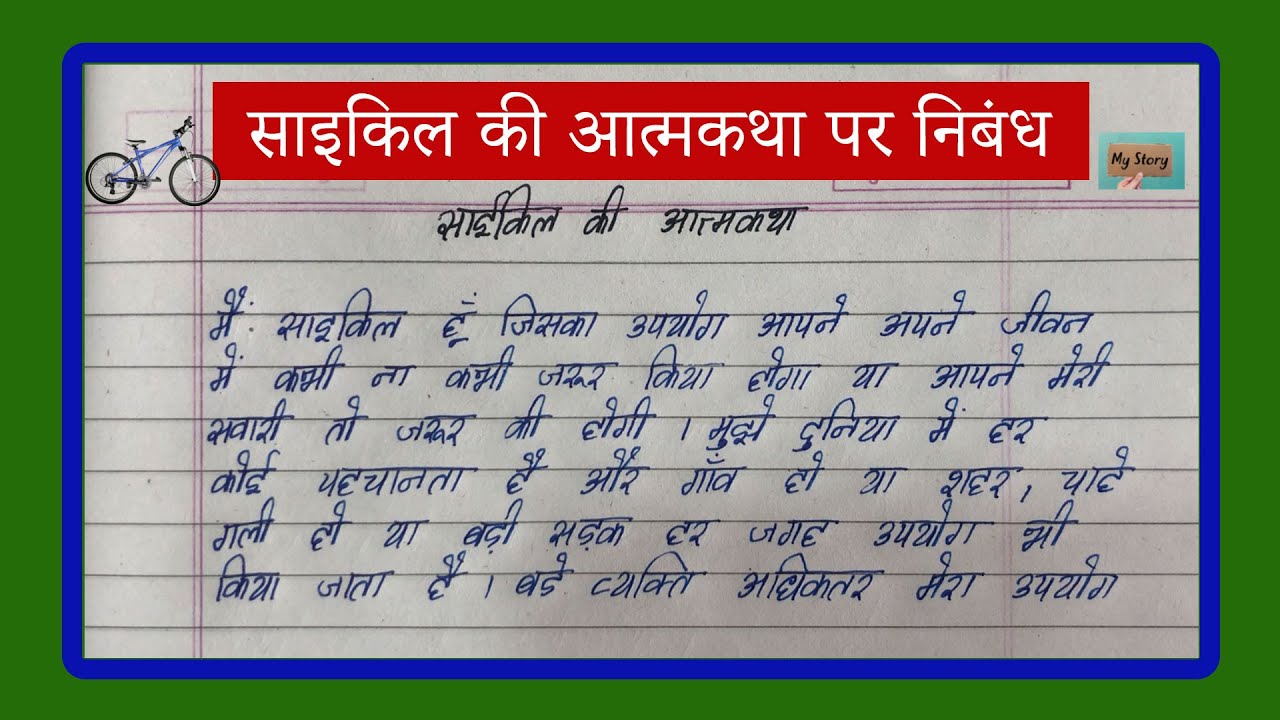 साइकिल की आत्मकथा पर निबंध
My Story
साईकिल की आत्मकथा
मैं साइकिल हूँ जिसका उपयोग आपने अपने जीवन
में कभी ना कभी जरूर किया होगा या आपने मेरी
सवारी तो जरूर की होगी । मुझे दुनिया में हर
कोई पहचानता है और गाँव हो या शहर, चाहे
गली हो या बड़ी सड़क हर जगह उपयोग भी
किया जाता है । बडे व्यक्ति अधिकतर मेरा उपयोग